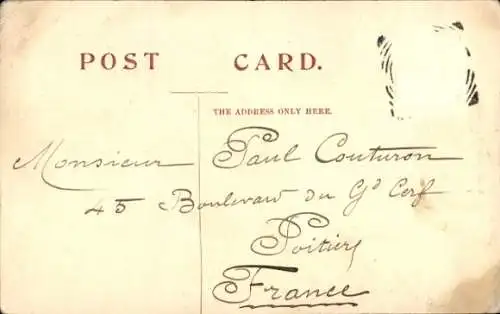 POST CARD.
THE ADDRESS ONLY HERE.
Monsieur Paul Couturon
45 Boulevard du Gd Cerf
Poitiers
France